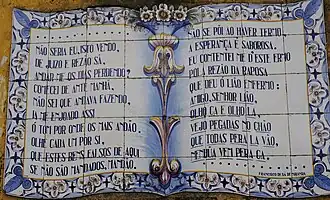 NÃO SERIA EU, ISTO VENDO,
DE JUIZO E REZÃO SÃ,
ANDAR-ME OS DIAS PERDENDO?
COMECEI DE ANTE MANHÃ,
NÃO SEI QUE ANDAVA FAZENDO,
JA ME ENJOADO ASSI
O TOM POR ONDE OS MAIS ANDÃO,
OLHE CADA UM POR SI,
QUE ESTES BENS FALSOS DE AQUI
SE NÃO SÃO MANDADOS, MANDÃO.
NÃO SE PÔI AO HAVER TERMO
A ESPERANÇA É SABOROSA,
EU CONTENTEI ME D'ESTE ERMO
POLA REZÃO DA RAPOSA
QUE DEU Ó LIÃO ENFERMO:
AMIGO, SENHOR LIÃO,
OLHO CÁ E OLHO LÁ,
VEJO PEGADAS NO CHÃO
QUE TODAS PERA LÁ VÃO,
NENHUA VEM PERA CÁ.
FRANCISCO DE SÁ DE MIRANDA